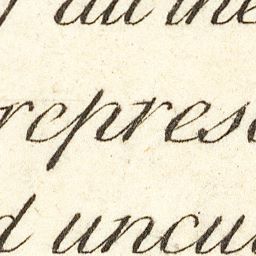 all the
repres
d uncu